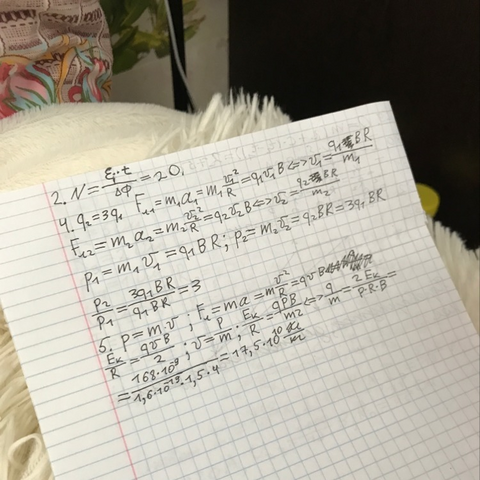 2. N = εᵢ·t / ΔΦ = 20.
4. q₂ = 3q₁ F_л1 = m₁a₁ = m₁ v₁²/R = q₁v₁B ⇔ v₁ = q₁BR / m₁
F_л2 = m₂a₂ = m₂ v₂²/R = q₂v₂B ⇔ v₂ = q₂BR / m₂
p₁ = m₁v₁ = q₁BR; p₂ = m₂v₂ = q₂BR = 3q₁BR
p₂/p₁ = 3q₁BR / q₁BR = 3
5. P = m·v ; F_л = ma = m v²/R = qvB
E_к/R = qvB / 2 ; v = P/m ; E_к/R = qPB / m2 ⇔ q/m = 2E_к / P·R·B =
= 168·10⁻⁹ / 1,6·10⁻¹⁹·1,5·4 = 17,5·10¹⁰ Кл/м